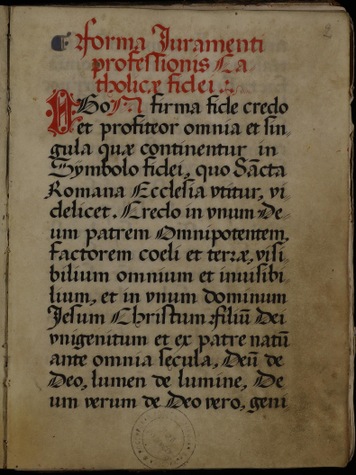 forma Juramenti
professionis Ca
tholicæ fidei ∴
EGo N firma fide credo
et profiteor omnia et sin
gula quæ continentur in
Symbolo fidei, quo Sācta
Romana Ecclesia vtitur, vi
delicet. Credo in vnum De
um patrem Omnipotentem,
factorem coeli et terræ, visi
bilium omnium et inuisibi
lium, et in vnum dominum
Jesum Christum filiū Dei
vnigenitum et ex patre natū
ante omnia secula, Deū de
Deo, lumen de lumine, De
um verum de Deo vero, geni
2